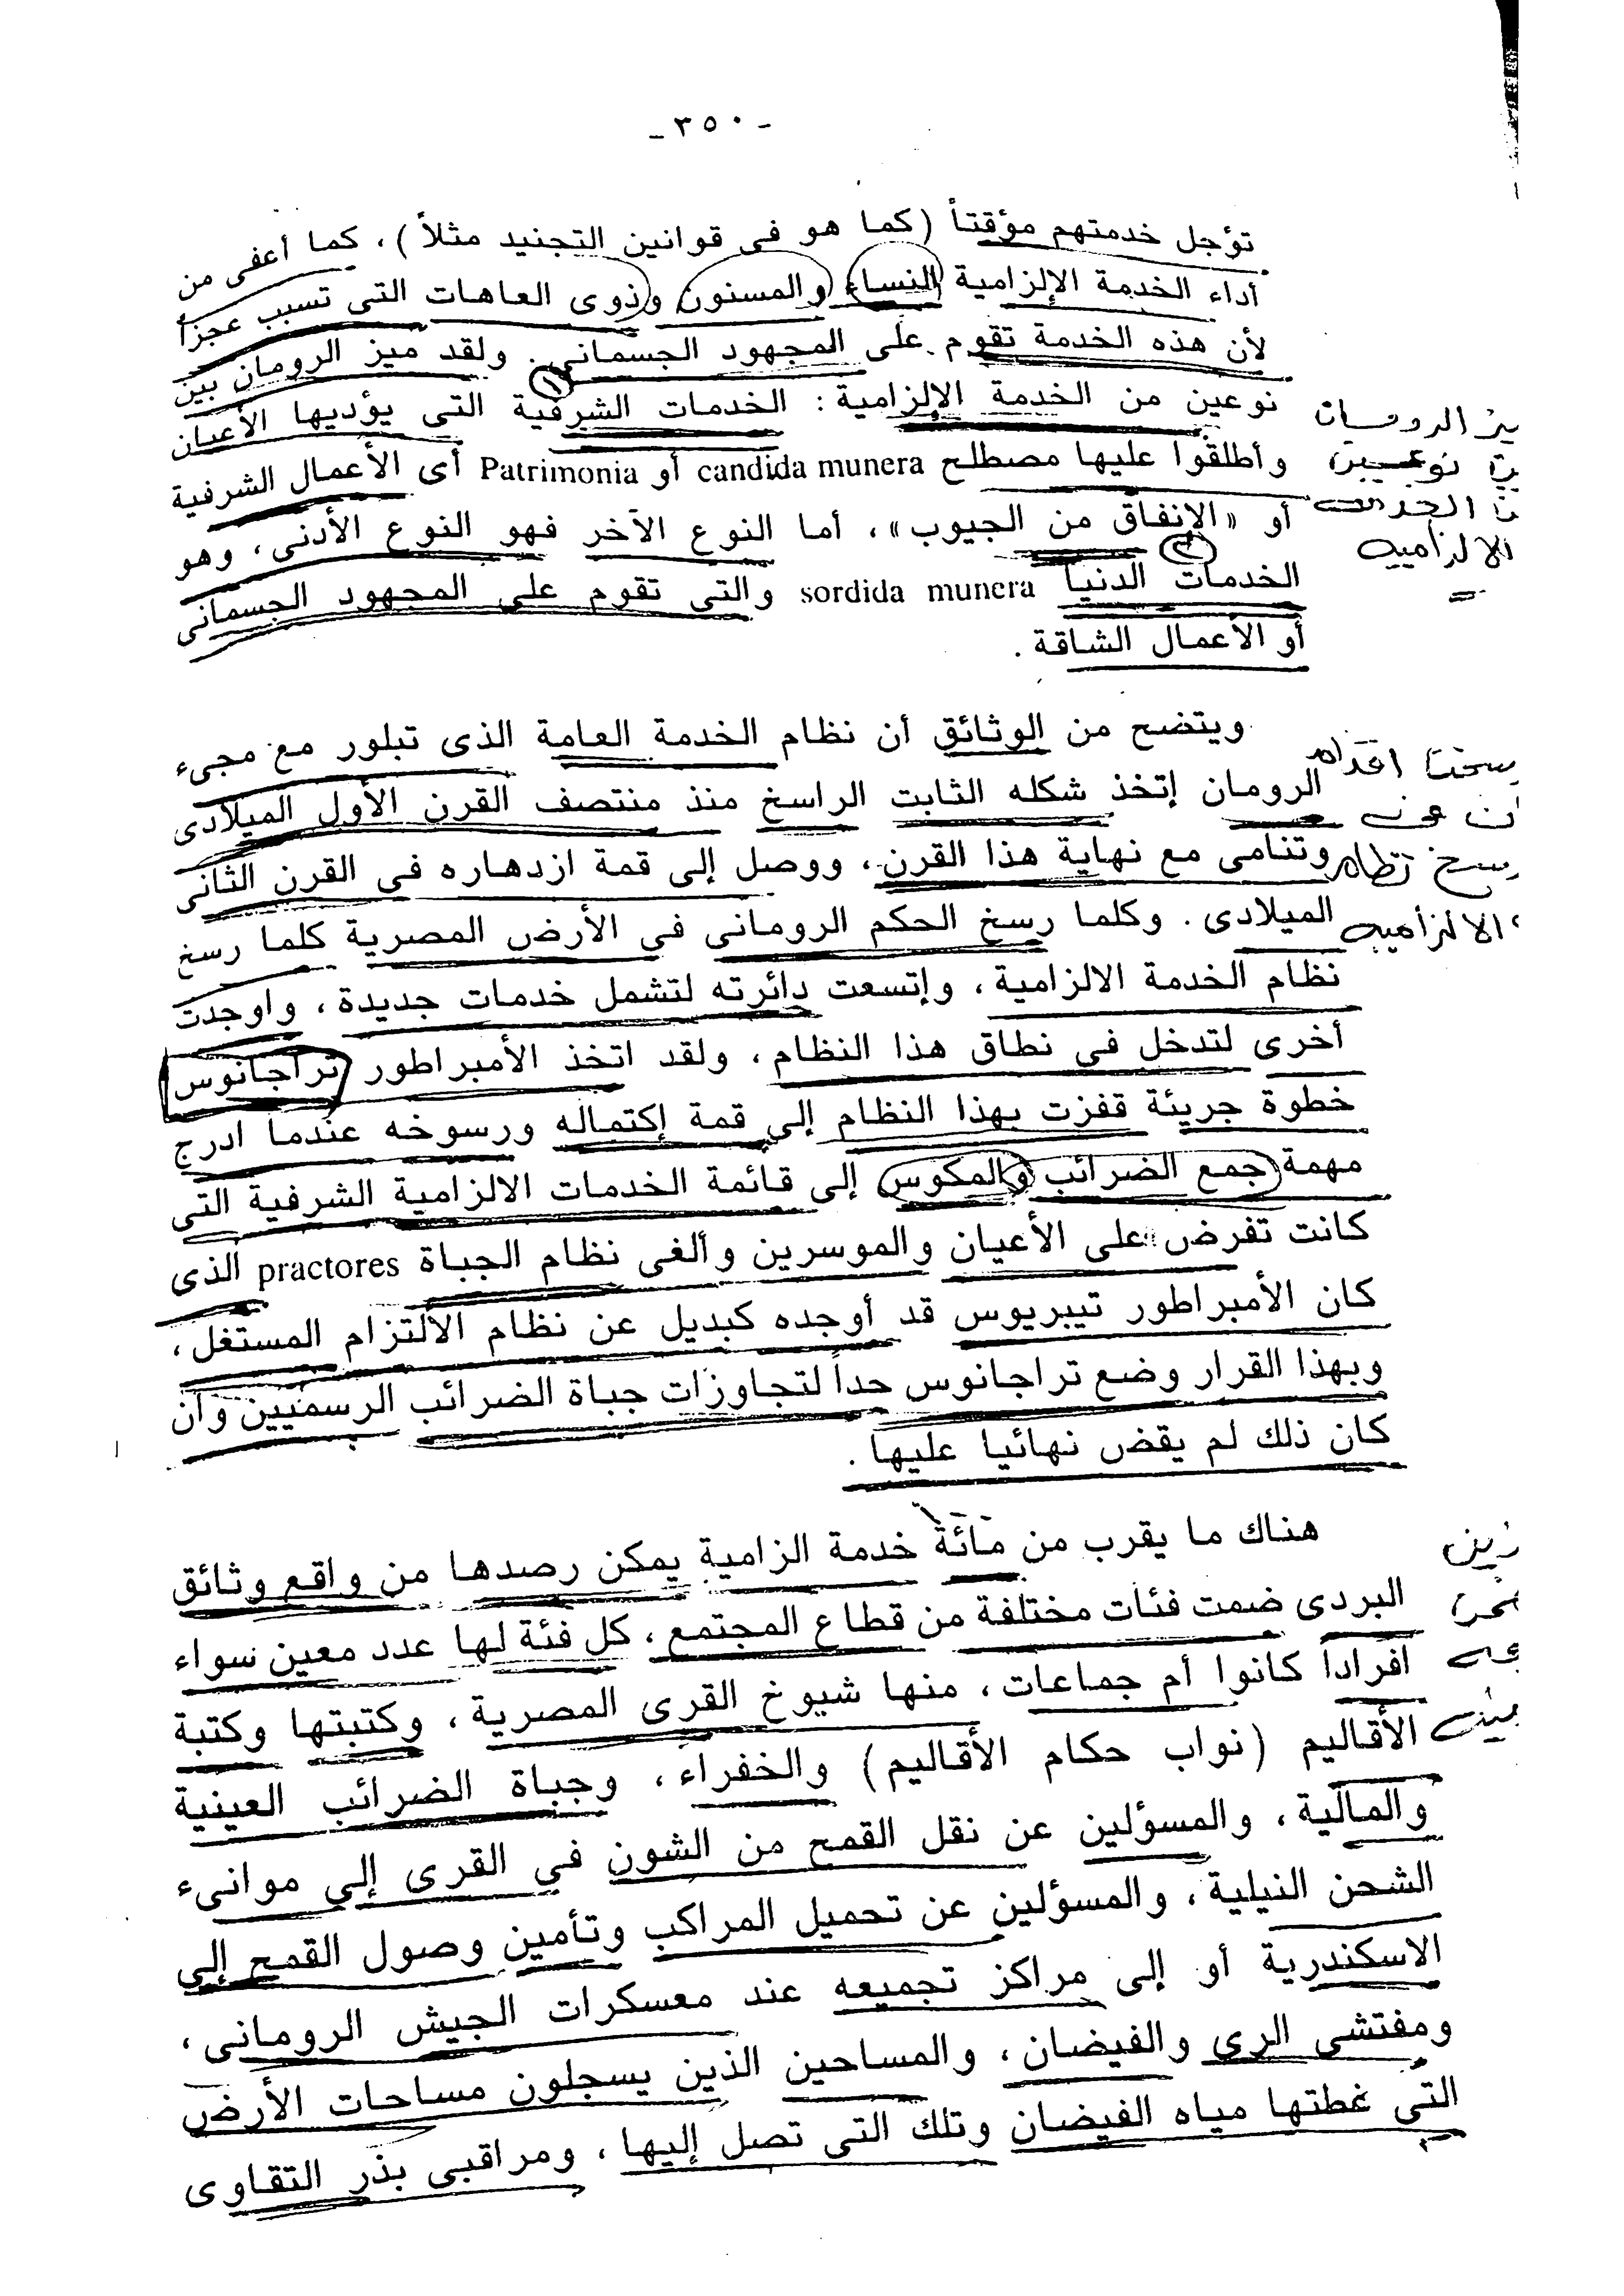 - ٣٥٠ -
تؤجل خدمتهم مؤقتاً (كما هو فى قوانين التجنيد مثلاً) ، كما أعفى من
أداء الخدمة الإلزامية النساء والمسنون وذوى العاهات التى تسبب عجزاً
لأن هذه الخدمة تقوم على المجهود الجسمانى . ولقد ميز الرومان بين
١
نوعين من الخدمة الإلزامية : الخدمات الشرفية التى يؤديها الأعيان
وأطلقوا عليها مصطلح candida munera أو Patrimonia أى الأعمال الشرفية
أو «الإنفاق من الجيوب» ، أما النوع الآخر فهو النوع الأدنى ، وهو
٢
الخدمات الدنيا sordida munera والتى تقوم على المجهود الجسمانى
أو الأعمال الشاقة .
الرومان
نوعين
الالزاميه
ويتضح من الوثائق أن نظام الخدمة العامة الذى تبلور مع مجىء
الرومان إتخذ شكله الثابت الراسخ منذ منتصف القرن الأول الميلادى
وتنامى مع نهاية هذا القرن ، ووصل إلى قمة ازدهاره فى القرن الثانى
الميلادى . وكلما رسخ الحكم الرومانى فى الأرض المصرية كلما رسخ
نظام الخدمة الالزامية ، وإتسعت دائرته لتشمل خدمات جديدة ، واوجدت
أخرى لتدخل فى نطاق هذا النظام ، ولقد اتخذ الأمبراطور تراجانوس
خطوة جريئة قفزت بهذا النظام إلى قمة إكتماله ورسوخه عندما ادرج
مهمة جمع الضرائب والمكوس إلى قائمة الخدمات الالزامية الشرفية التى
كانت تفرض على الأعيان والموسرين وألغى نظام الجباة practores الذى
كان الأمبراطور تيبريوس قد أوجده كبديل عن نظام الألتزام المستغل ،
وبهذا القرار وضع تراجانوس حداً لتجاوزات جباة الضرائب الرسميين وأن
كان ذلك لم يقض نهائيا عليها .
نظام
الالزاميه
هناك ما يقرب من مائة خدمة الزامية يمكن رصدها من واقع وثائق
البردى ضمت فئات مختلفة من قطاع المجتمع ، كل فئة لها عدد معين سواء
افراداً كانوا أم جماعات ، منها شيوخ القرى المصرية ، وكتبتها وكتبة
الأقاليم (نواب حكام الأقاليم) والخفراء ، وجباة الضرائب العينية
والمالية ، والمسؤلين عن نقل القمح من الشون فى القرى إلى موانىء
الشحن النيلية ، والمسؤلين عن تحميل المراكب وتأمين وصول القمح إلى
الاسكندرية أو إلى مراكز تجميعه عند معسكرات الجيش الرومانى ،
ومفتشى الرى والفيضان ، والمساحين الذين يسجلون مساحات الأرض
التى غطتها مياه الفيضان وتلك التى تصل إليها ، ومراقبى بذر التقاوى